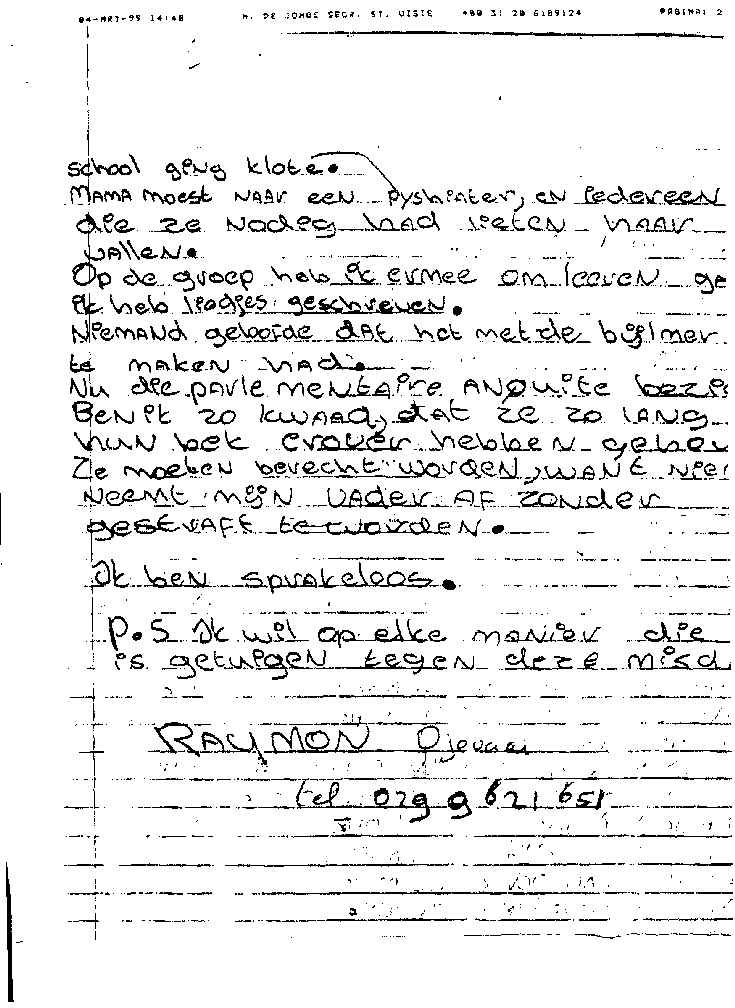 04-MRT-99 14:48 M. DE JONGE SEGR. ST. VISIE +00 31 20 6189124 PAGINA: 2
school ging klote.
MAMA moest NAAR EEN pyshiater, EN iedereen
die ze Nodeg had lieten haar
vallen.
Op de groep heb ik ermee om leeren ge
ik heb liedjes geschreven.
Niemand geloofde dat het met de bijlmer
te maken had.
Nu die parlementaire ANQuite bezig
Ben ik zo kwaad, dat ze zo lang
hun bek erover hebben gehou
Ze moeten berecht worden, want nie
Neemt mijn vader af zonder
gestraft te worden.
Ik ben sprakeloos.
P.S Ik wil op elke manier die
is getuigen tegen deze misd
RAYMON
tel 029 9 621 651